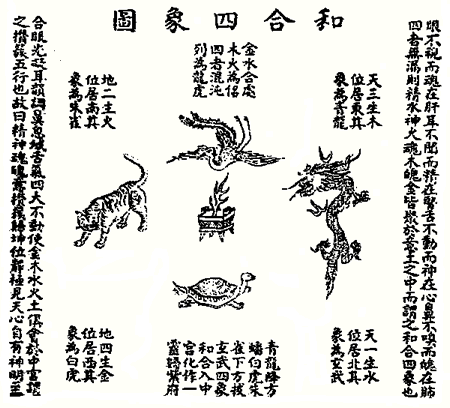 和合四象圖
眼不視而魂在肝耳不聞而精在腎舌不動而神在心鼻不嗅而魄在肺
四者無漏則精水神火魂木魄金皆聚於意土之中而謂之和合四象也
天三生木
位居東其
象為青龍
金水合處
木火為侶
四者混沌
列為龍虎
地二生火
位居南其
象為朱雀
天一生水
位居北其
象為玄武
青龍降方
蟠白虎朱
雀下方後
玄武四象
和合入中
宮化作一
靈歸紫府
地四生金
位居西其
象為白虎
合眼光凝耳韻調鼻息緘舌氣四大不動使金木水火土俱會於中宮謂
之攢簇五行也故曰精神魂魄意攢簇歸坤位靜極見天心自有神明至